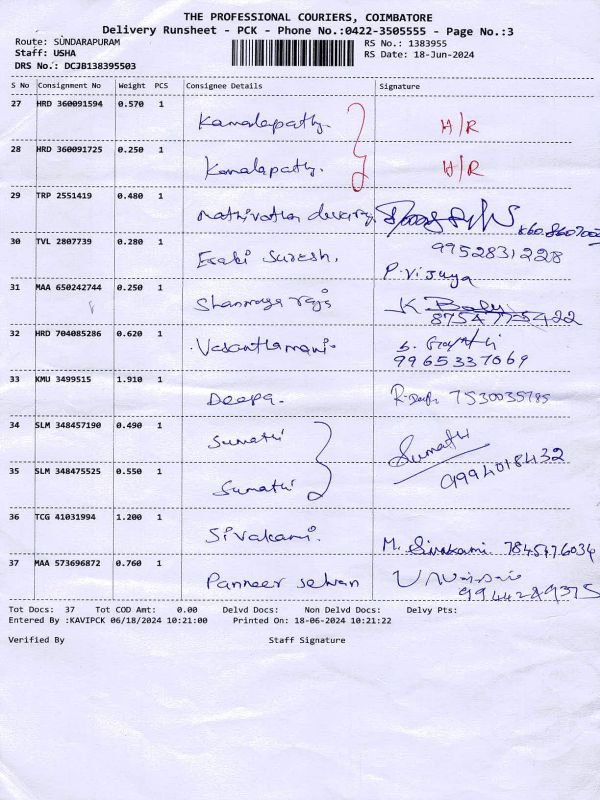 THE PROFESSIONAL COURIERS, COIMBATORE
Delivery Runsheet - PCK - Phone No.:0422-3505555 - Page No.:3
Route: SUNDARAPURAM
RS No.: 1383955
Staff: USHA
RS Date: 18-Jun-2024
DRS No.: DCJB138395503
S No Consignment No Weight PCS Consignee Details Signature
27 HRD 360091594 0.570 1 Kamalapathy. H/R
28 HRD 360091725 0.250 1 Kamalapathy. H/R
29 TRP 2551419 0.480 1
30 TVL 2807739 0.280 1 Esaki Suresh. 9952831228
P. Vijaya
31 MAA 650242744 0.250 1 Shanmuga raja K Balu
8754775422
32 HRD 704085286 0.620 1 Vasanthamani. S. Gayathri
9965337069
33 KMU 3499515 1.910 1 Deepa. R. Deepa 7530035785
34 SLM 348457190 0.490 1 Sumathi Sumathi
9994018432
35 SLM 348475525 0.550 1 Sumathi
36 TCG 41031994 1.200 1 Sivakami. M. Sivakami 7845476034
37 MAA 573696872 0.760 1 Panneer selvan
9944289375
Tot Docs: 37 Tot COD Amt: 0.00 Delvd Docs: Non Delvd Docs: Delvy Pts:
Entered By :KAVIPCK 06/18/2024 10:21:00 Printed On: 18-06-2024 10:21:22
Verified By Staff Signature